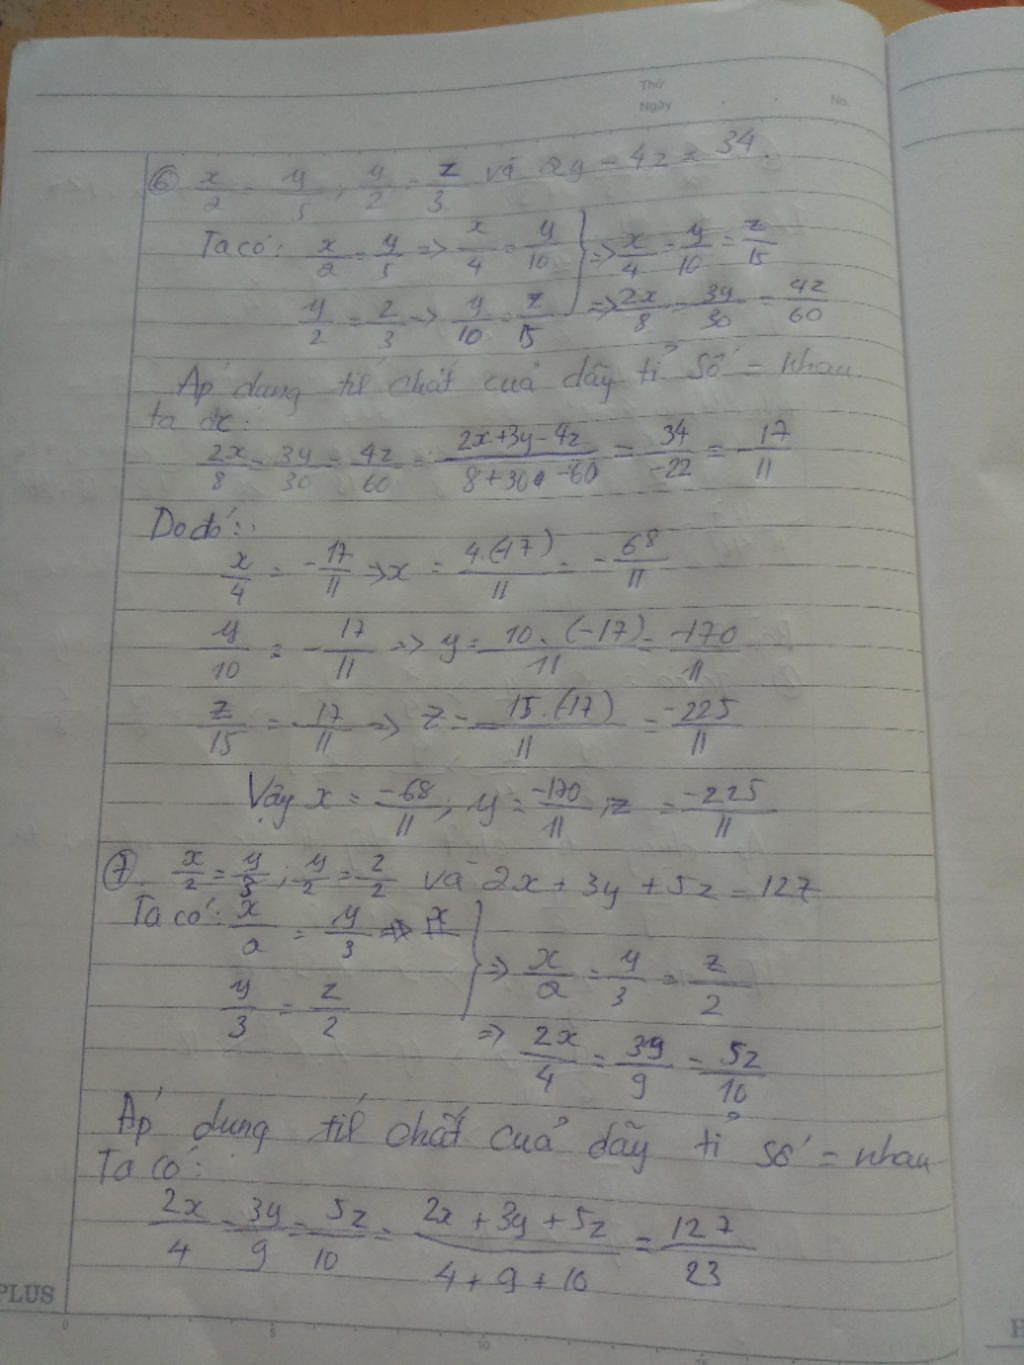 Thứ
Ngày No.
⑥ x/2 = y/5 ; y/2 = z/3 và 2y - 4z = 34.
Ta có: x/2 = y/5 => x/4 = y/10 } => x/4 = y/10 = z/15
y/2 = z/3 => y/10 = z/15 => 2x/8 = 3y/30 = 4z/60
Áp dụng tíc chất của dãy tỉ số = nhau
ta đc:
2x/8 = 3y/30 = 4z/60 = (2x+3y-4z)/(8+30-60) = 34/-22 = -17/11
Do đó:
x/4 = -17/11 => x = 4.(-17)/11 = -68/11
y/10 = -17/11 => y = 10.(-17)/11 = -170/11
z/15 = -17/11 => z = 15.(-17)/11 = -225/11
Vậy x = -68/11 ; y = -170/11 ; z = -225/11
⑦. x/2 = y/3 ; y/2 = z/2 và 2x + 3y + 5z = 127
Ta có: x/2 = y/3
y/3 = z/2 } => x/2 = y/3 = z/2
=> 2x/4 = 3y/9 = 5z/10
Áp dụng tíc chất của dãy tỉ số = nhau
Ta có:
2x/4 = 3y/9 = 5z/10 = (2x + 3y + 5z)/(4 + 9 + 10) = 127/23
PLUS
0 5 10 15
H